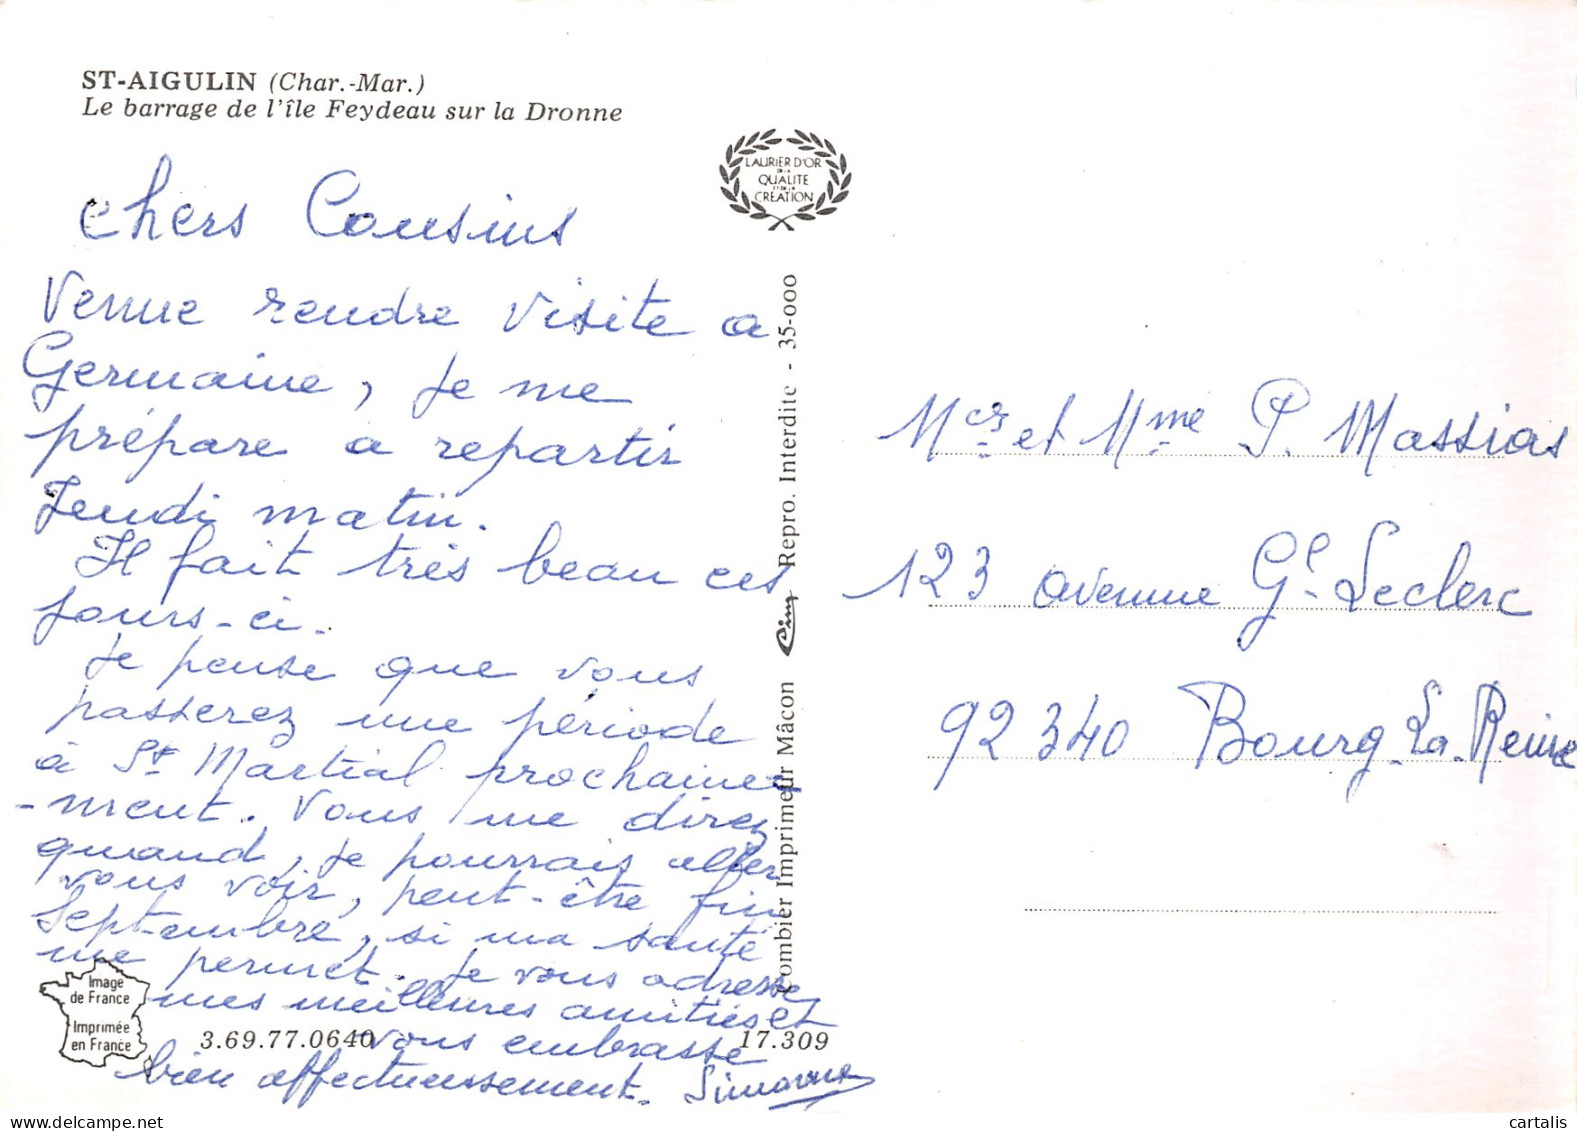 ST-AIGULIN (Char.-Mar.)
Le barrage de l'île Feydeau sur la Dronne
LAURIER D'OR
DE LA
QUALITE
ET DE LA
CREATION
chers Cousins
Venue rendre visite a
Germaine, je me
prépare a repartir
Jeudi matin.
Il fait très beau ces
jours-ci.
Je pense que vous
passerez une période
à St Martial prochaine
-ment. Vous me direz
quand, je pourrais aller
vous voir, peut-être fin
Septembre, si ma santé
me permet. Je vous adresse
mes meilleures amitiés et
vous embrasse
bien affectueusement. Simonne
Image
de France
Imprimée
en France
3.69.77.0640
17.309
Combier Imprimeur Mâcon Cim Repro. Interdite - 35-000
Mer et Mme P. Massias
123 avenue Gl Leclerc
92340 Bourg-La-Reine
cartalis